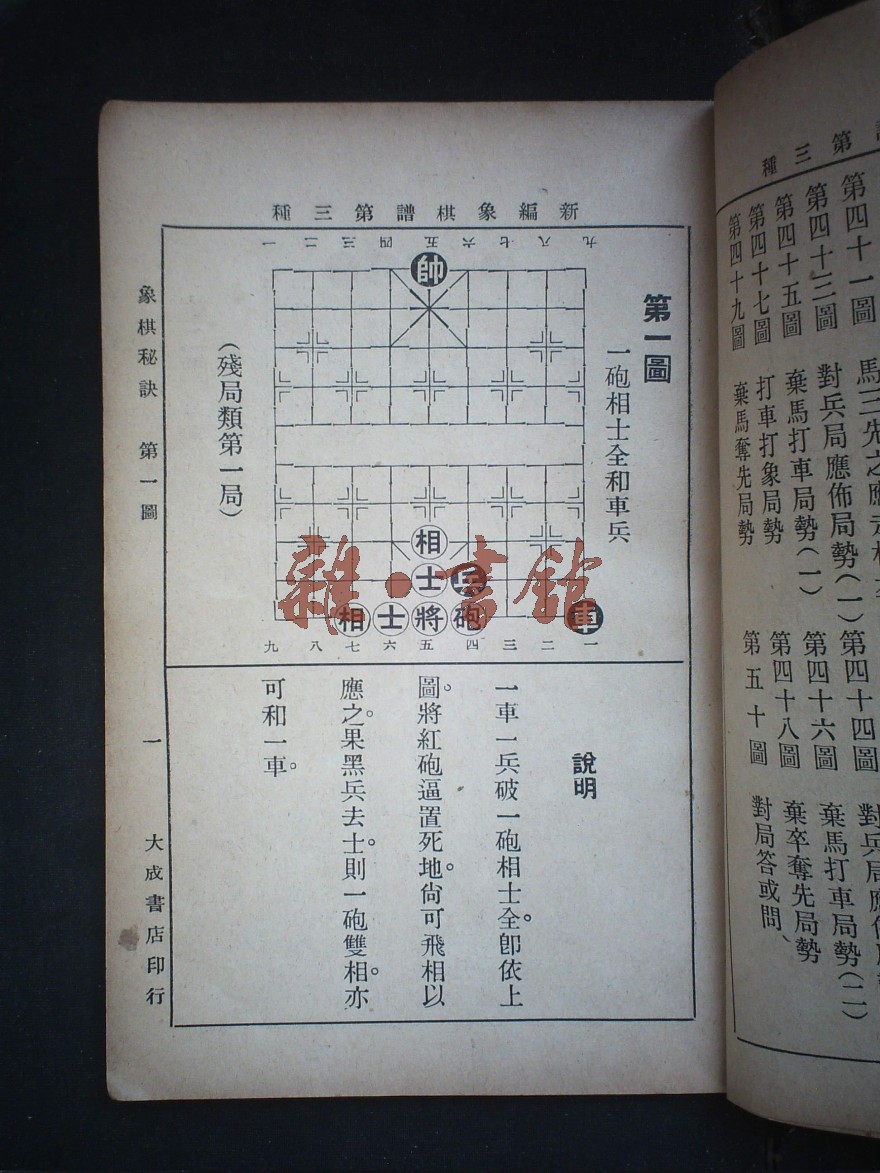 新編象棋譜第三種
第一圖
一砲相士全和車兵
(殘局類第一局)
九八七六五四三二一
帥
相
士兵
相士將砲車
九八七六五四三二一
說明
一車一兵破一砲相士全。卽依上
圖。將紅砲逼置死地。尙可飛相以
應之。果黑兵去士。則一砲雙相。亦
可和一車。
象棋秘訣 第一圖 一 大成書店印行
雜·書館
第三種
第四十一圖
第四十三圖 對兵局應佈局勢(一)
第四十五圖 棄馬打車局勢(一)
第四十七圖 打車打象局勢
第四十九圖 棄馬奪先局勢
第四十四圖
第四十六圖 棄馬打車局勢(二)
第四十八圖 棄卒奪先局勢
第五十圖 對局答或問、